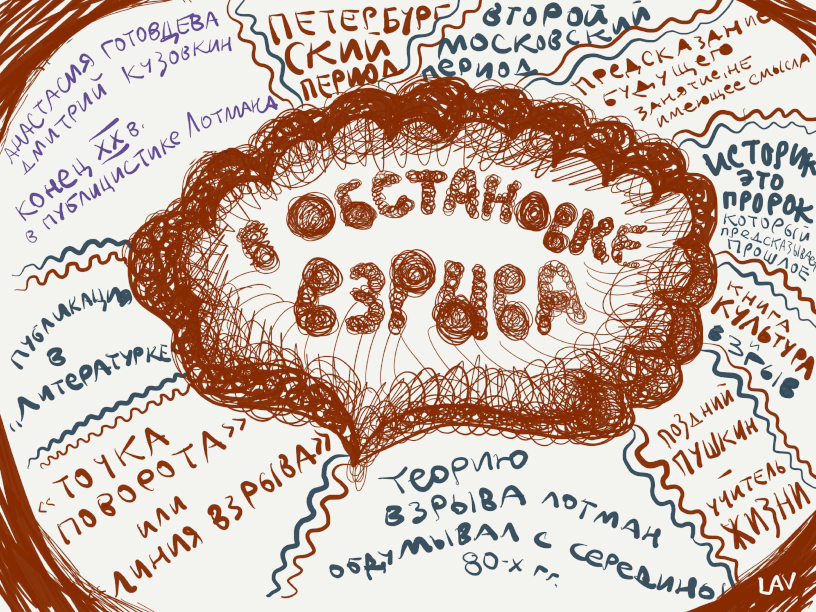 АНАСТАСИЯ ГОТОВЦЕВА
ДМИТРИЙ КУЗОВКИН
КОНЕЦ XX В.
В ПУБЛИЦИСТИКЕ ЛОТМАНА
ПЕТЕРБУРГ
СКИЙ
ПЕРИОД
ВТОРОЙ
МОСКОВСКИЙ
ПЕРИОД
ПРЕДСКАЗАНИЕ
БУДУЩЕГО
ЗАНЯТИЕ, НЕ
ИМЕЮЩЕЕ СМЫСЛА
ИСТОРИК
ЭТО
ПРОРОК
КОТОРЫЙ
ПРЕДСКАЗЫВАЕТ
ПРОШЛОЕ
В ОБСТАНОВКЕ
ВЗРЫВА
КНИГА
КУЛЬТУРА
И
ВЗРЫВ
ПУБЛИКАЦИЯ
В
"ЛИТЕРАТУРКЕ
«ТОЧКА
ПОВОРОТА»
ИЛИ
ЛИНИЯ ВЗРЫВА»
ТЕОРИЮ
ВЗРЫВА ЛОТМАН
ОБДУМЫВАЛ С СЕРЕДИНЫ
80-Х ГГ.
ПОЗДНИЙ
ПУШКИН
–
УЧИТЕЛЬ
ЖИЗНИ
LAV